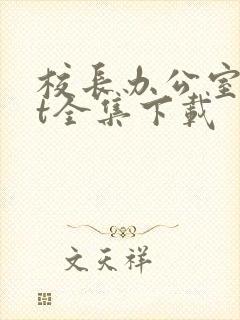 校长办公室
t全集下载
文天祥